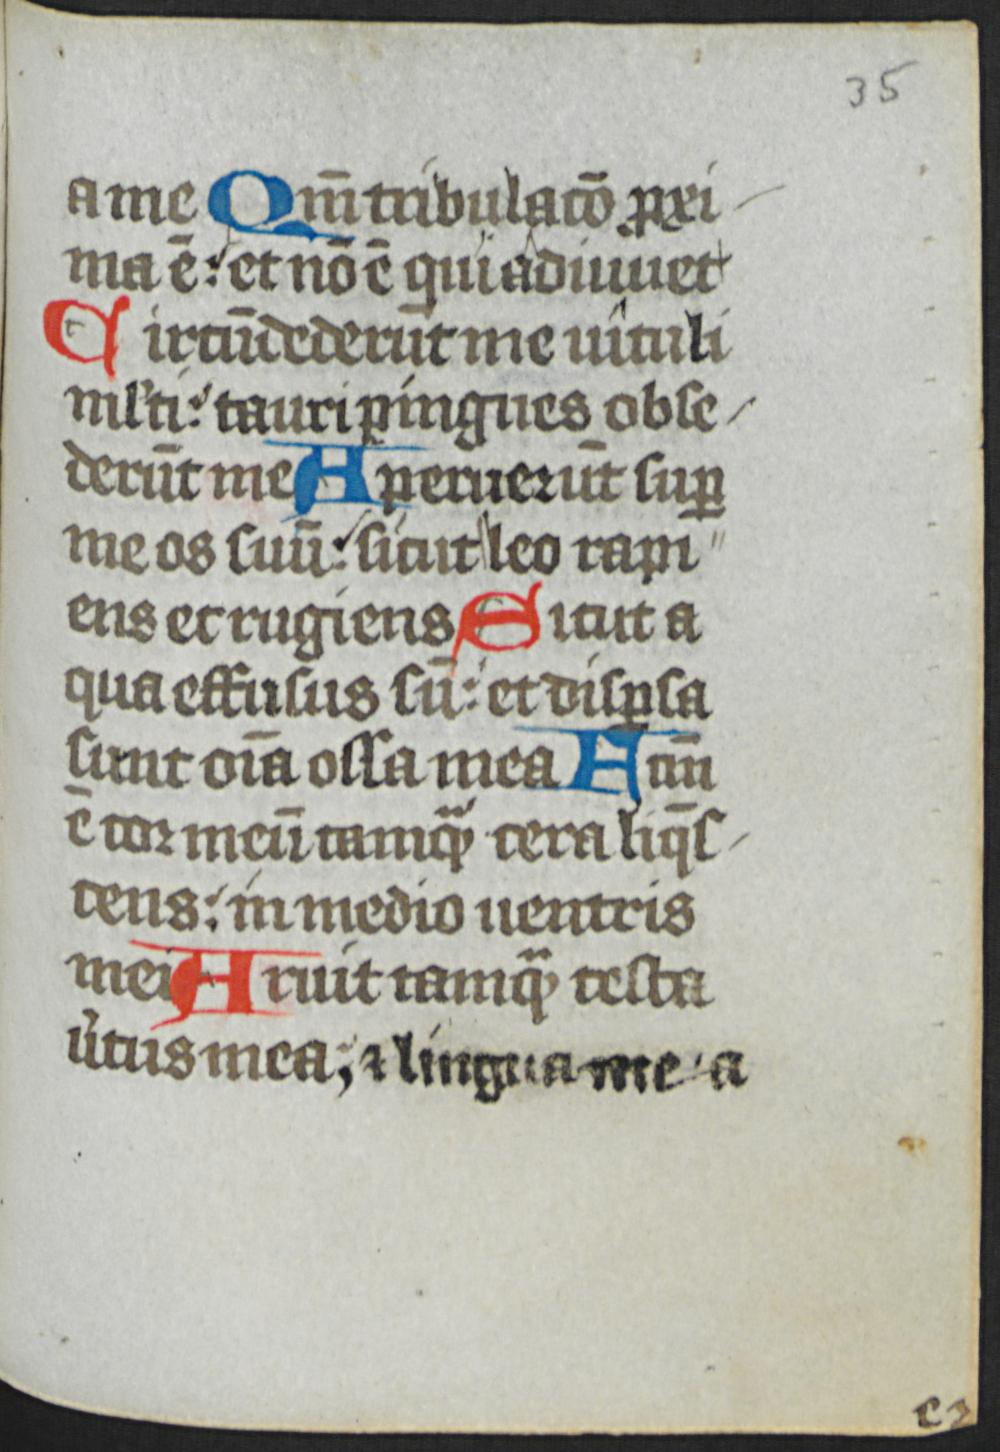 35
a me Qm̄ tribulacō ꝓxi
ma ē: et nō ē qui adiuuet
Circūdederūt me uituli
ml'ti: tauri pingues obse
derūt me Aperuerūt suꝑ
me os suū: sicut leo rapi
ens et rugiens Sicut a
qua effusus sū: et disꝑsa
sunt oīa ossa mea Fctm̄
ē cor meū tamqͣ cera liq̄s
cens: in medio uentris
mei Aruit tamqͣ testa
u'tus mea; ⁊ lingua mea a
c3